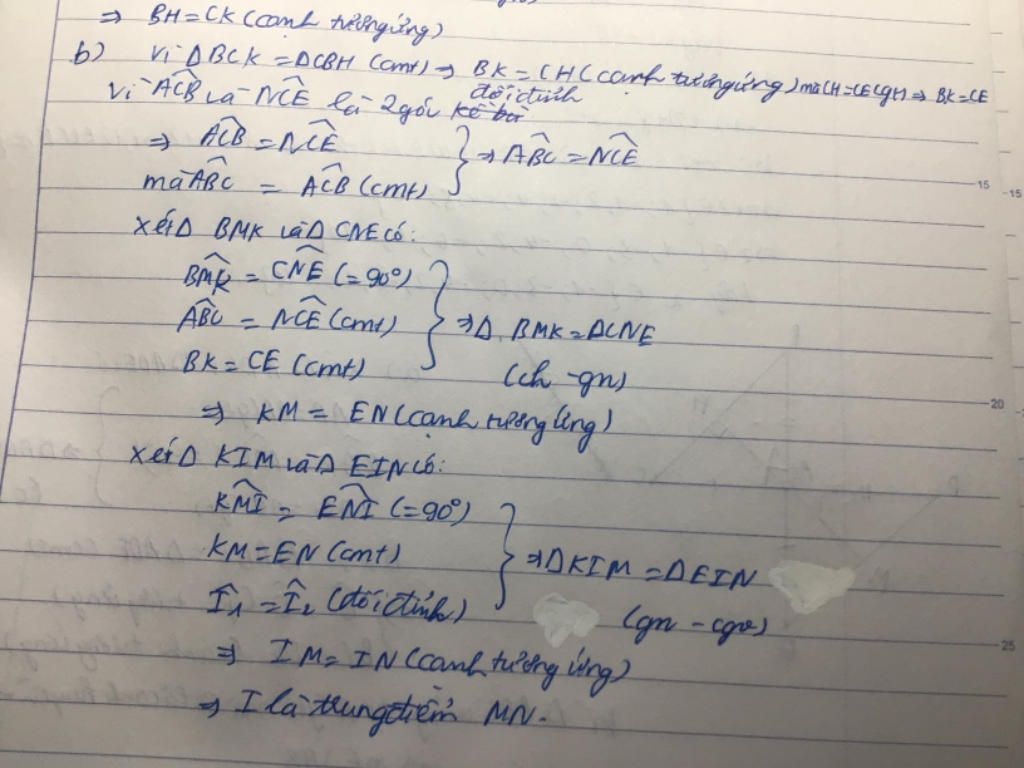 ⇒ BH = CK (cạnh tương ứng)
b) Vì ΔBCK = ΔCBH (cmt) ⇒ BK = CH (cạnh tương ứng) mà CH = CE (gt) ⇒ BK = CE
đối đỉnh
Vì ACB và NCE là 2 góc kề bù
⇒ ACB = NCE
⇒ ABC = NCE
mà ABC = ACB (cmt)
xét Δ BMK và Δ CNE có:
BMK = CNE (= 90°)
ABC = NCE (cmt)
⇒ Δ BMK = ΔCNE
BK = CE (cmt)
(ch - gn)
⇒ KM = EN (cạnh tương ứng)
xét Δ KIM và Δ EIN có:
KMI = ENI (= 90°)
KM = EN (cmt)
⇒ ΔKIM = ΔEIN
I1 = I2 (đối đỉnh)
(gn - cgv)
⇒ IM = IN (cạnh tương ứng)
⇒ I là trung điểm MN.
15
15
20
25